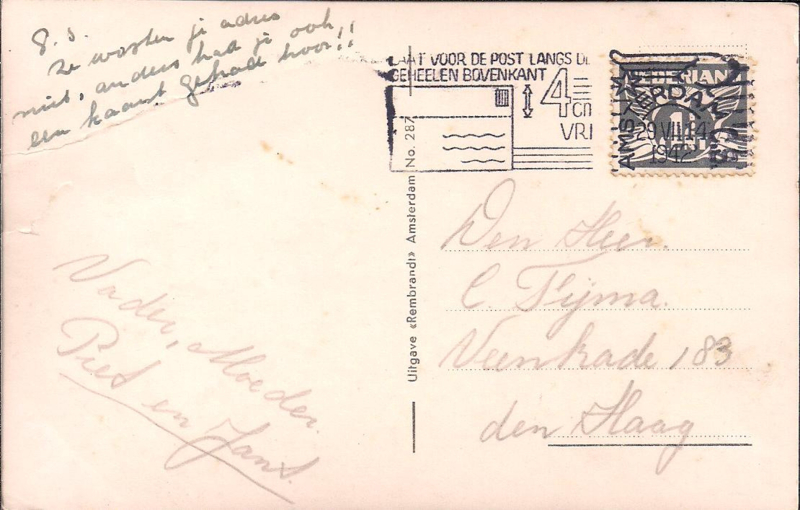 P.S.
Ze wisten je adres
niet, anders had je ook
een kaart gehad hoor!!
LAAT VOOR DE POST LANGS DE
GEHEELEN BOVENKANT
4 cm
VRI
NEDERLAND
AMSTERDAM C.S.
29 VII 14
1942
Uitgave «Rembrandt» Amsterdam No. 287
Den Heer
C Tijma.
Veenkade 183
den Haag
Vader, Moeder.
Piet en Jans.